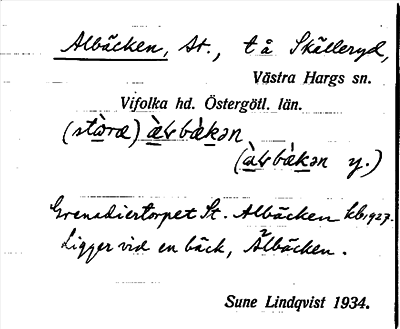 Albäcken, St., t å Skälleryd,
Västra Hargs sn.
Vifolka hd. Östergötl. län.
(stὰræ) ὰɫbὰkən
(ὰɫbὰkən y.)
Grenadiertorpet St. Albäcken kb 1927.
Ligger vid en bäck, Älbäcken.
Sune Lindqvist 1934.